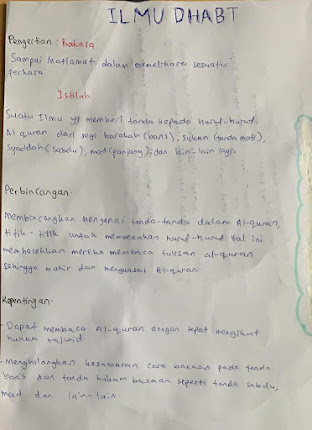 ILMU DHABT
Pengertian : Bahasa
Sampai Matlamat dalam memelihara sesuatu
perkara
Istilah
Suatu Ilmu yg memberi tanda kepada huruf-huruf
Al quran dari segi harakah (baris), sukun (tanda mati),
syaddah (sabdu), mad (panjang), dan lain-lain lagi.
Perbincangan.
Membincangkan mengenai tanda-tanda dalam Al-quran,
titik-titik untuk membezakan huruf-huruf Hal ini
membolehkan mereka membaca tulisan al-quran
sehingga mahir dan menguasai Al-quran.
Kepentingan.
- Dapat membaca Al-quran dengan tepat mengikut
hukum tajwid.
- Menghilangkan kesamaran cara bacaan pada tanda
baris dan tanda hukum bacaan seperti tanda sabdu,
mad dan lain-lain